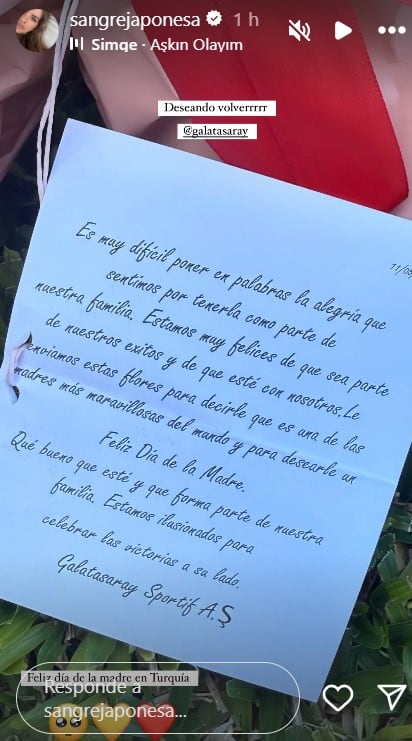 sangrejaponesa 1 h
Simge · Aşkın Olayım
Deseando volverrrrr
@galatasaray
11/05
Es muy difícil poner en palabras la alegría que
sentimos por tenerla como parte de
nuestra familia. Estamos muy felices de que sea parte
de nuestros exitos y de que esté con nosotros.Le
enviamos estas flores para decirle que es una de las
madres más maravillosas del mundo y para desearle un
Feliz Día de la Madre.
Qué bueno que esté y que forma parte de nuestra
familia. Estamos ilusionados para
celebrar las victorias a su lado.
Galatasaray Sportif A.Ş
Feliz día de la madre en Turquía
Responde a
sangrejaponesa...